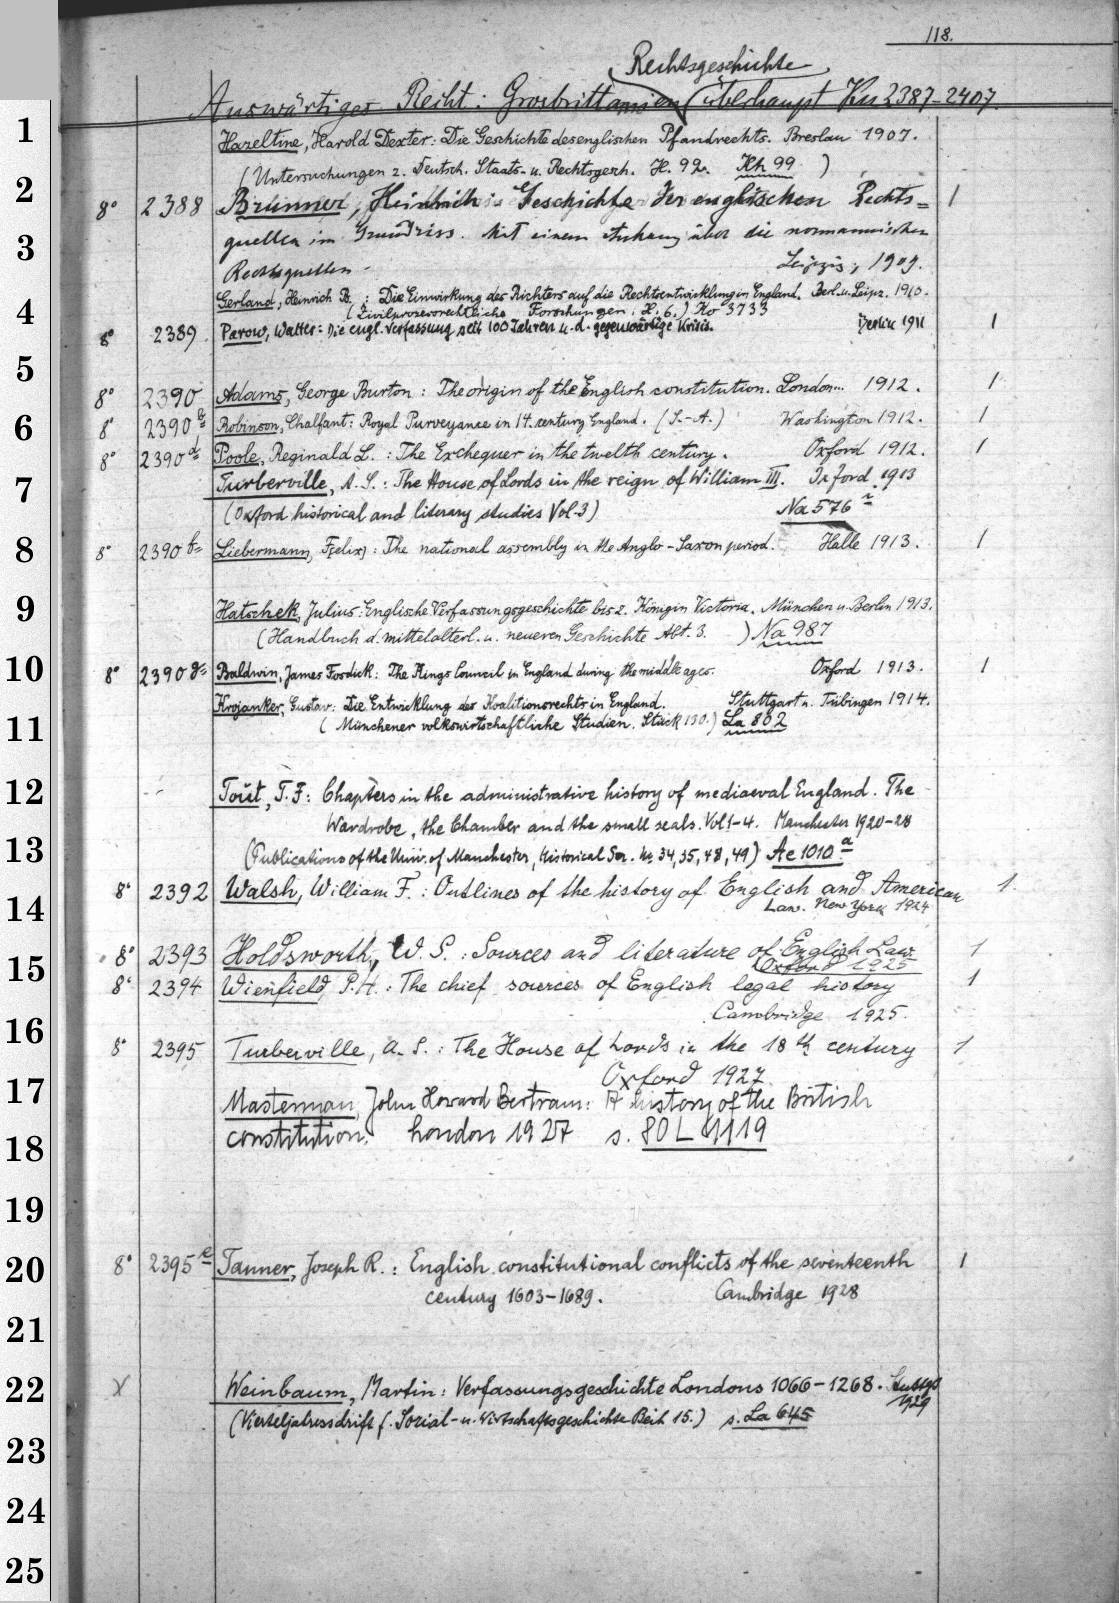 118.
Rechtsgeschichte
Auswärtiges Recht: Grosbrittanien überhaupt Kn 2387-2407.
1
Hazeltine, Harold Dexter: Die Geschichte des englischen Pfandrechts. Breslau 1907.
(Untersuchungen z. Deutsch. Staats- u. Rechtsgesch. H. 92. Kh 99 )
2
8° 2388 Brunner, Heinrich: Geschichte der englischen Rechts= 1
3
quellen im Grundriss. Mit einem Anhang über die normannischen
Rechtsquellen. Leipzig, 1909.
4
Gerland, Heinrich B.: Die Einwirkung des Richters auf die Rechtsentwicklung in England. Berl. u. Leipz. 1910.
(Zivilprozessrechtliche Forschungen. H. 6.) Ko 3733
8° 2389. Parow, Walter: Die engl. Verfassung seit 100 Jahren u. d. gegenwärtige Krisis. Berlin 1911 1
5
8° 2390 Adams, George Burton: The origin of the English constitution. London 1912. 1
6
8° 2390 b= Robinson, Chalfant: Royal Purveyance in 14. century England. (S.-A.) Washington 1912. 1
8° 2390 d= Poole, Reginald L.: The Exchequer in the twelfth century. Oxford 1912. 1
7
Turberville, A. S.: The House of Lords in the reign of William III. Oxford 1913
(Oxford historical and literary studies Vol. 3) Na 576 r
8
8° 2390 f= Liebermann, F[elix]: The national assembly in the Anglo-Saxon period. Halle 1913. 1
9
Hatschek, Julius: Englische Verfassungsgeschichte bis z. Königin Victoria. München u. Berlin 1913.
(Handbuch d. mittelalterl. u. neueren Geschichte Abt. 3. ) Na 987
10
8° 2390 g= Baldwin, James Fosdick: The Kings Council in England during the middle ages. Oxford 1913. 1
Krojanker, Gustav: Die Entwicklung des Koalitionsrechts in England. Stuttgart u. Tübingen 1914.
11
(Münchener volkswirtschaftliche Studien. Stück 130.) La 802
12
Tout, T. F: Chapters in the administrative history of mediaeval England. The
Wardrobe, the Chamber and the small seals. Vol 1-4. Manchester 1920-28
13
(Publications of the Univ. of Manchester, Historical Ser. No 34, 35, 48, 49) Ae 1010 a
8° 2392 Walsh, William F.: Outlines of the history of English and American 1.
14
Law. New York 1924
8° 2393 Holdsworth, W. S.: Sources and literature of English Law 1
15
Oxford 1925
8° 2394 Wienfield, P. H.: The chief sources of English legal history 1
Cambridge 1925.
16
8° 2395 Turberville, A. S.: The House of Lords in the 18th century 1
Oxford 1927.
17
Masterman, John Howard Bertram: A history of the British
constitution. London 1927 s. 80 L 4119
18
19
20
8° 2395 e= Tanner, Joseph R.: English constitutional conflicts of the seventeenth 1
century 1603-1689. Cambridge 1928
21
22
X Weinbaum, Martin: Verfassungsgeschichte Londons 1066-1268. Stuttgt
1929
(Vierteljahresschrift f. Sozial- u. Wirtschaftsgeschichte Beih 15.) s. La 645
23
24
25